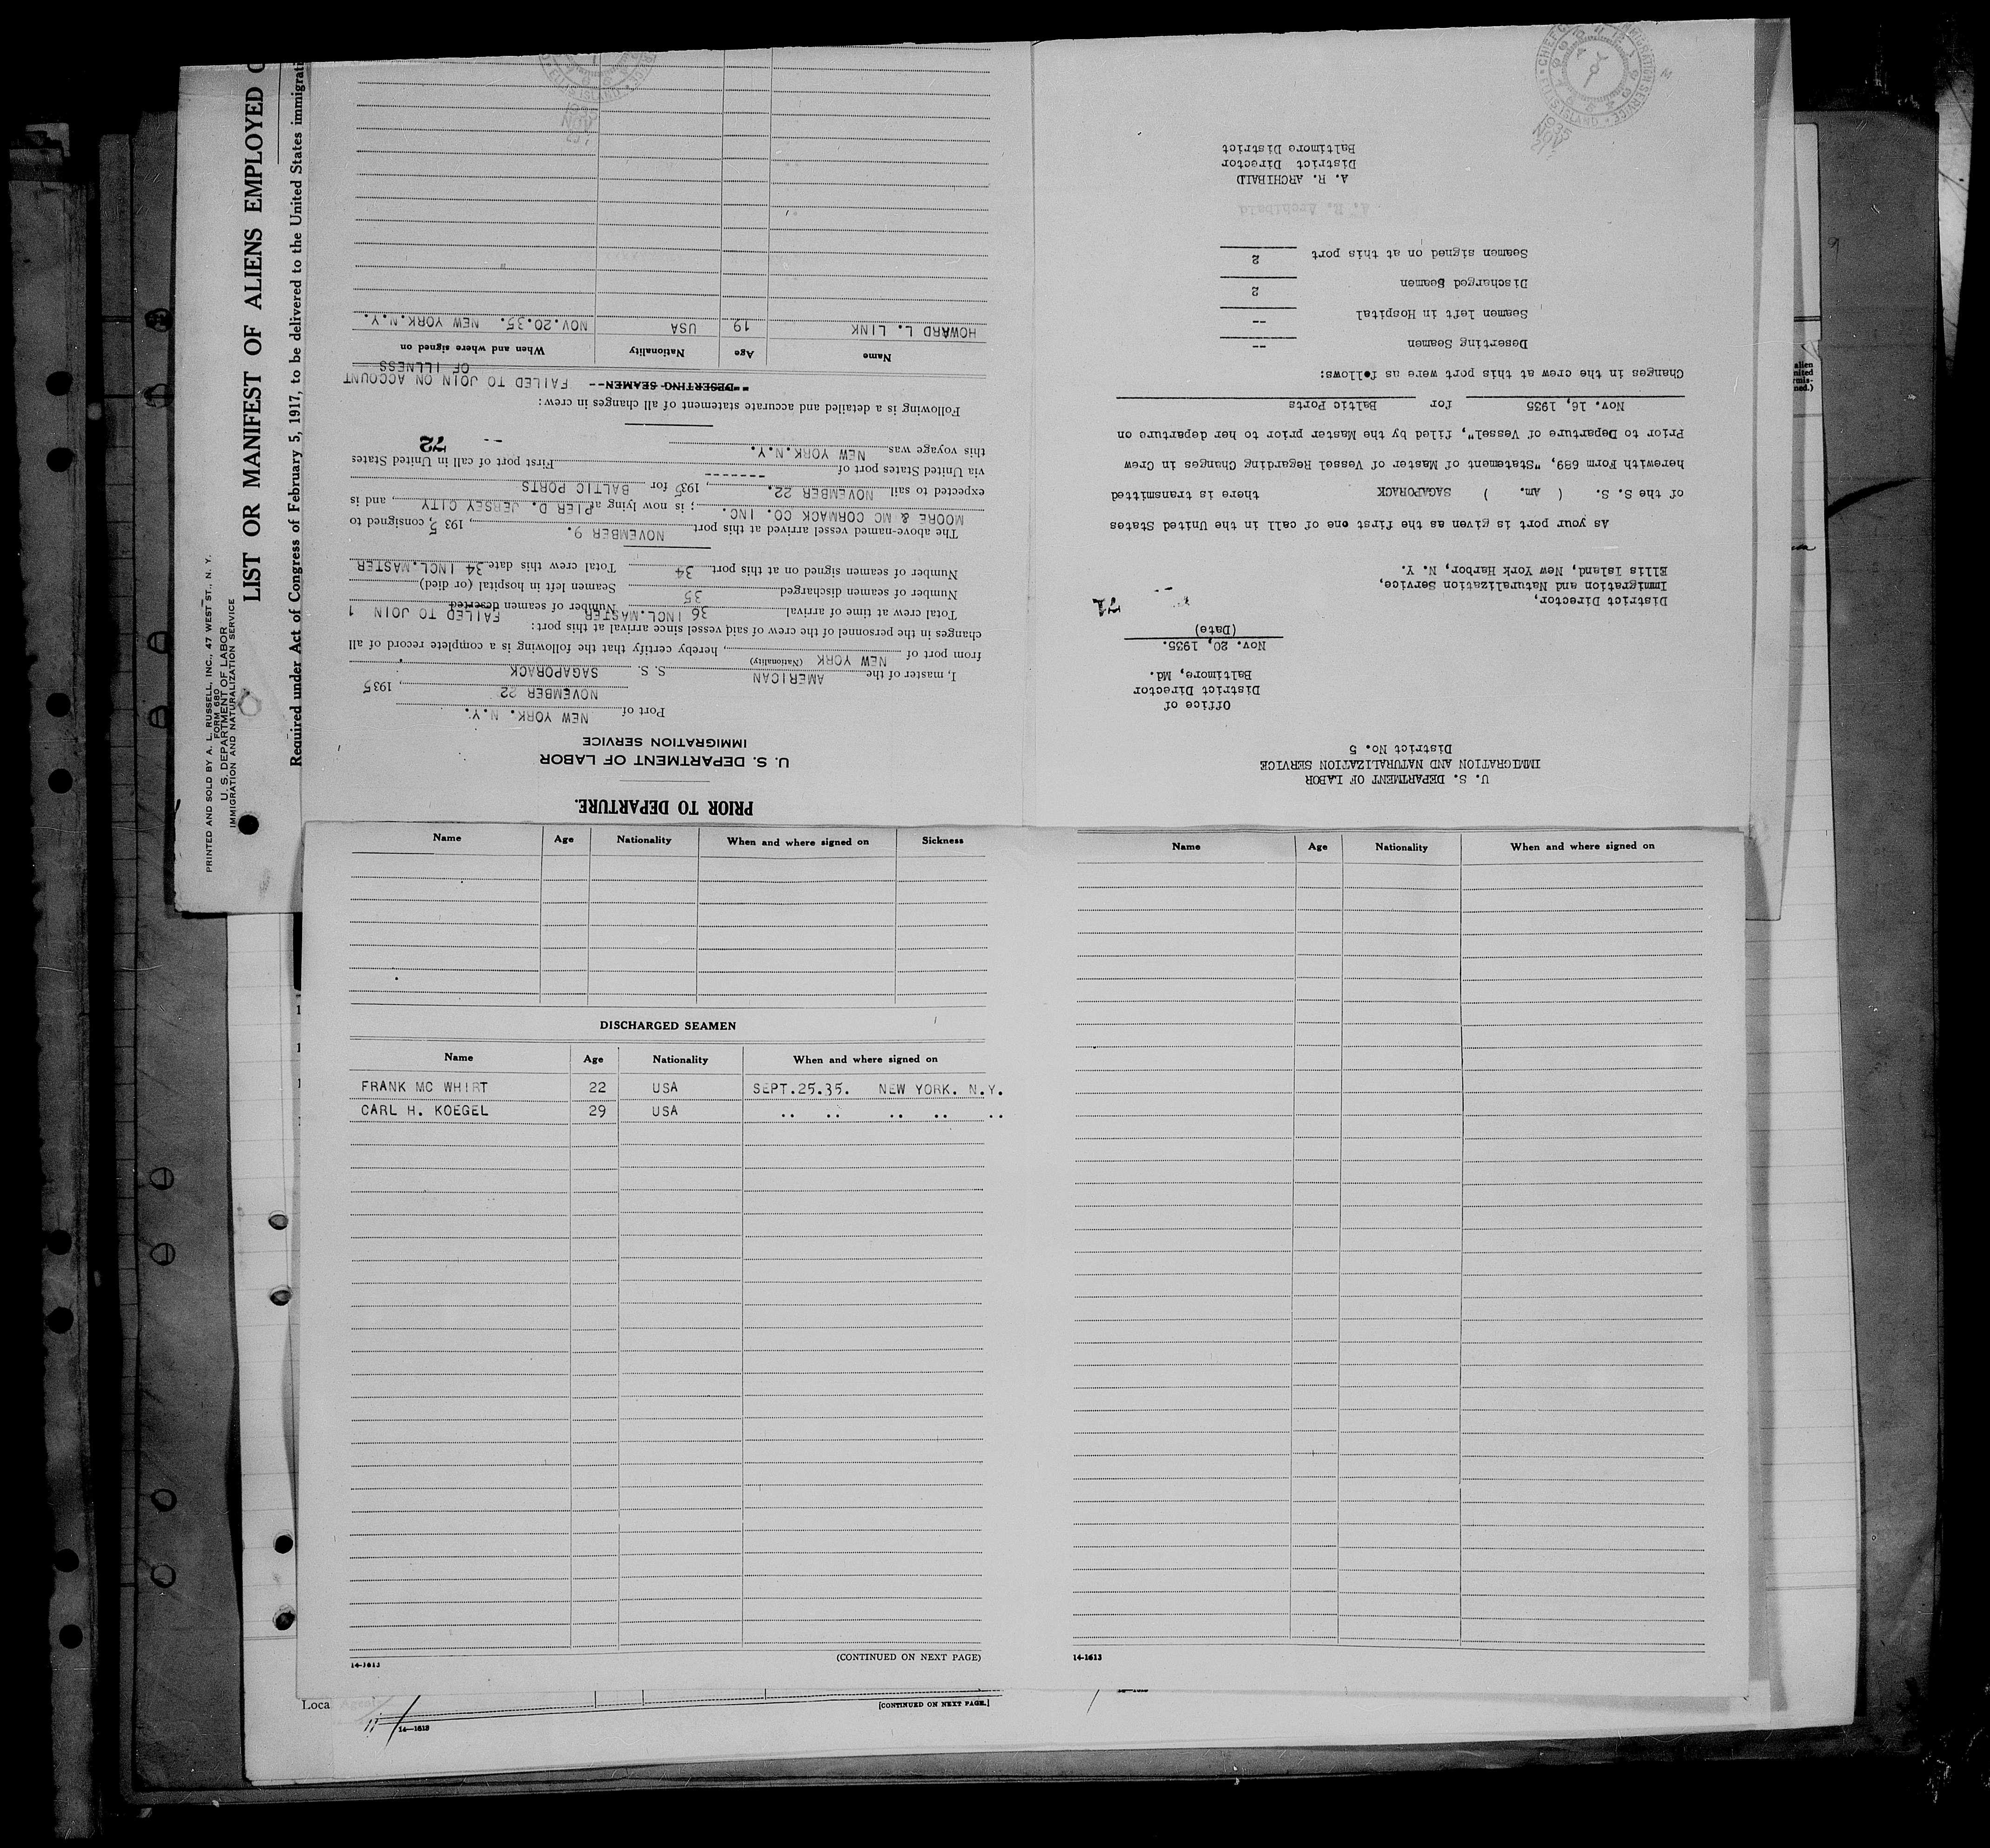 PRINTED AND SOLD BY A. L. RUSSELL, INC., 47 WEST ST., N. Y.
FORM 680
U. S. DEPARTMENT OF LABOR
IMMIGRATION AND NATURALIZATION SERVICE
LIST OR MANIFEST OF ALIENS EMPLOYED
Required under Act of Congress of February 5, 1917, to be delivered to the United States immigrati
PRIOR TO DEPARTURE.
U. S. DEPARTMENT OF LABOR
IMMIGRATION SERVICE
Port of NEW YORK. N.Y.
NOVEMBER 22, 1935
I, master of the AMERICAN S. S. SAGAPORACK
(Nationality)
from port of NEW YORK, hereby certify that the following is a complete record of all
changes in the personnel of the crew of said vessel since arrival at this port:
Total crew at time of arrival 36 INCL.MASTER Number of seamen deserted FAILED TO JOIN 1
Number of seamen discharged 35 Seamen left in hospital (or died)
Number of seamen signed on at this port 34 Total crew this date 34 INCL.MASTER
The above-named vessel arrived at this port NOVEMBER 9., 1935, consigned to
MOORE & MC CORMACK CO. INC. ; is now lying at PIER D. JERSEY CITY, and is
expected to sail NOVEMBER 22., 1935 for BALTIC PORTS
via United States port of ------- First port of call in United States
this voyage was NEW YORK.N.Y. --
72
Following is a detailed and accurate statement of all changes in crew:
--DESERTING SEAMEN-- FAILED TO JOIN ON ACCOUNT
OF ILLNESS
Name Age Nationality When and where signed on
HOWARD L. LINK 19 USA NOV.20.35. NEW YORK.N.Y.
ELLIS ISLAND
NOV
U. S. DEPARTMENT OF LABOR
IMMIGRATION AND NATURALIZATION SERVICE
District No. 5
Office of
District Director
Baltimore, Md.
Nov. 20, 1935.
(Date)
71
District Director,
Immigration and Naturalization Service,
Ellis Island, New York Harbor, N. Y.
As your port is given as the first one of call in the United States
of the S. S. ( Am. ) SAGAPORACK there is transmitted
herewith Form 689, "Statement of Master of Vessel Regarding Changes in Crew
Prior to Departure of Vessel", filed by the Master prior to her departure on
Nov. 16, 1935 for Baltic Ports
Changes in the crew at this port were as follows:
Deserting Seamen --
Seamen left in Hospital --
Discharged Seamen 2
Seamen signed on at this port 2
A. R. Archibald
A. R. ARCHIBALD
District Director
Baltimore District
ELLIS ISLAND
NOV
Name Age Nationality When and where signed on Sickness
DISCHARGED SEAMEN
Name Age Nationality When and where signed on
FRANK MC WHIRT 22 USA SEPT.25.35. NEW YORK. N.Y.
CARL H. KOEGEL 29 USA .. .. .. .. ..
14-1613 (CONTINUED ON NEXT PAGE)
Name Age Nationality When and where signed on
14-1613
Loca
[CONTINUED ON NEXT PAGE.]
11
14—1613